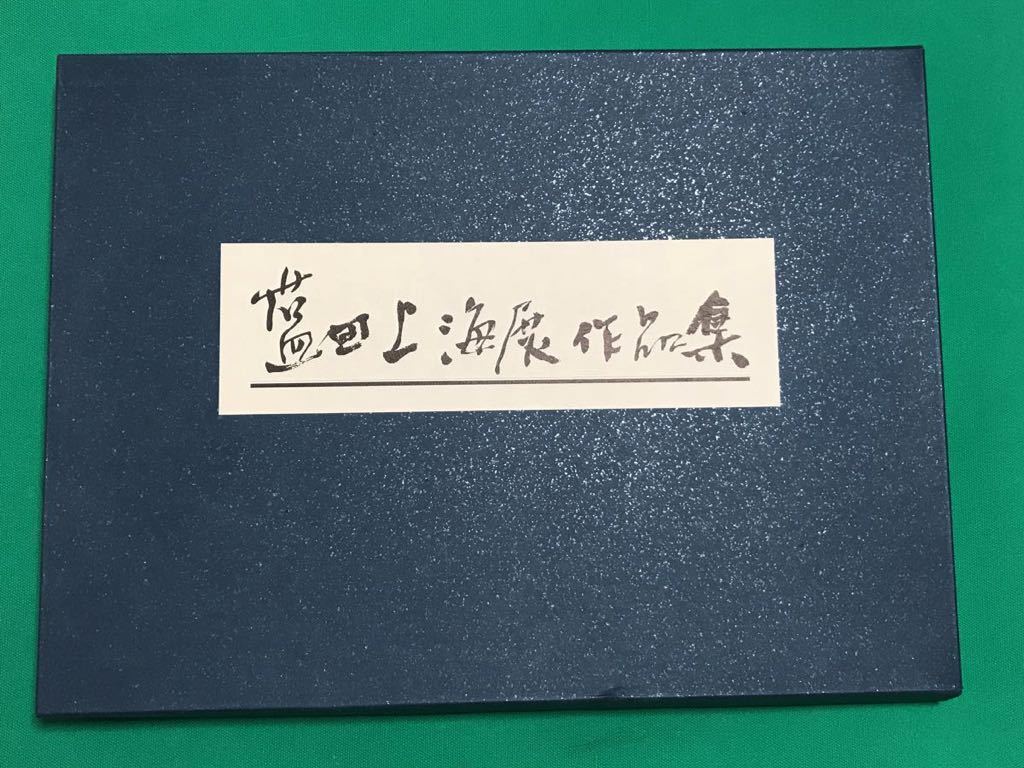 藍田上海展作品集